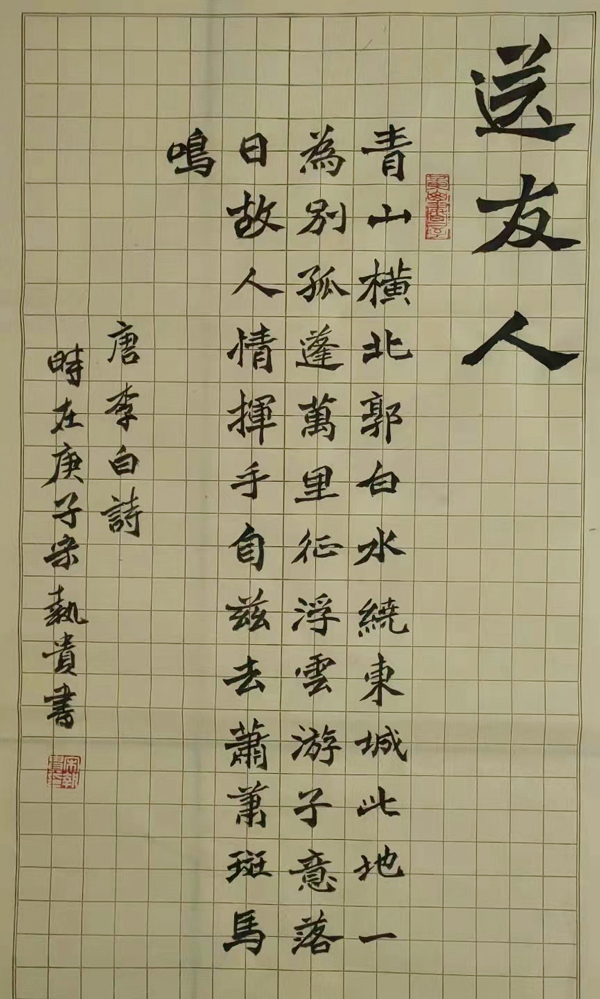 送友人
青山橫北郭白水繞東城此地一
為別孤蓬萬里征浮雲游子意落
日故人情揮手自兹去蕭蕭斑馬
鳴
唐李白詩
時在庚子宋執貴書